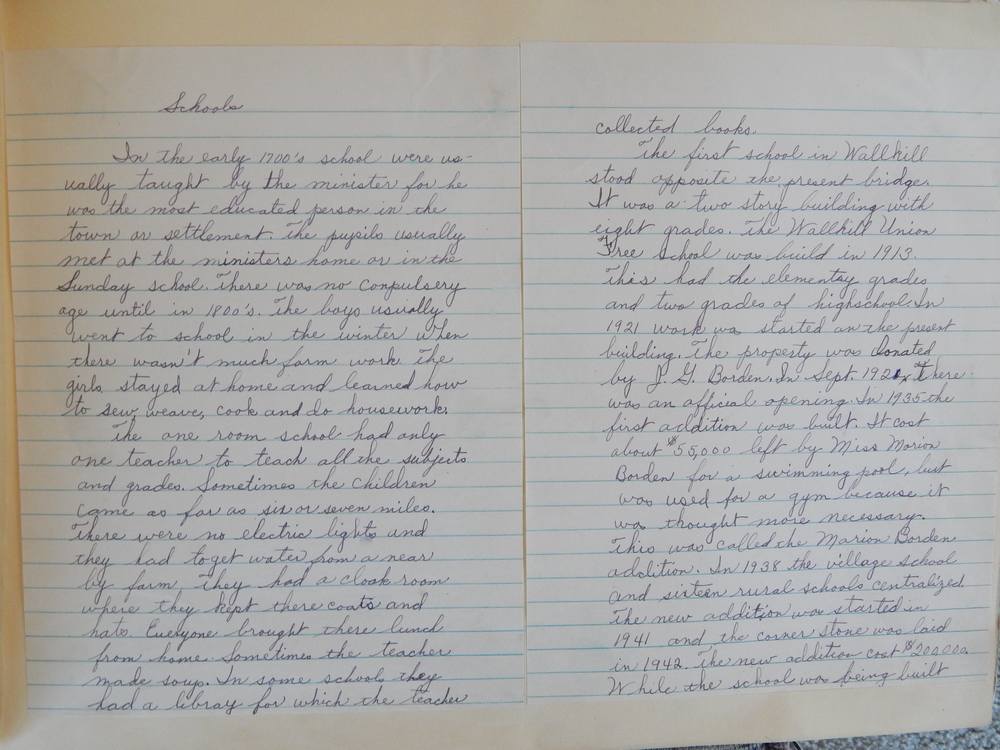 Schools
In the early 1700's school were us-
ually taught by the minister for he
was the most educated person in the
town or settlement. The pupils usually
met at the ministers home or in the
Sunday school. There was no conpulsery
age until in 1800's. The boys usually
went to school in the winter when
there wasn't much farm work. The
girls stayed at home and learned how
to sew, weave, cook and do housework.
The one room school had only
one teacher to teach all the subjects
and grades. Sometimes the children
came as far as six or seven miles.
There were no electric lights and
they had to get water from a near
by farm. They had a cloak room
where they kept there coats and
hats. Everyone brought there lunch
from home. Sometimes the teacher
made soup. In some schools they
had a libray for which the teacher
collected books.
The first school in Wallkill
stood opposite the present bridge.
It was a two story building with
eight grades. The Wallkill Union
Free School was build in 1913.
This had the elementsy grades
and two grades of highschool. In
1921 work was started on the present
building. The property was donated
by J. G. Borden. In Sept. there
was an official opening. In 1935 the
first addition was built. It cost
about $55,000 left by Miss Marion
Borden for a swimming pool, but
was used for a gym because it
was thought more necessary.
This was called the Marion Borden
addition. In 1938 the village school
and sixteen rural schools centralized.
The new addition was started in
1941 and the corner stone was laid
in 1942. The new addition cost $200,000.
While the school was being built